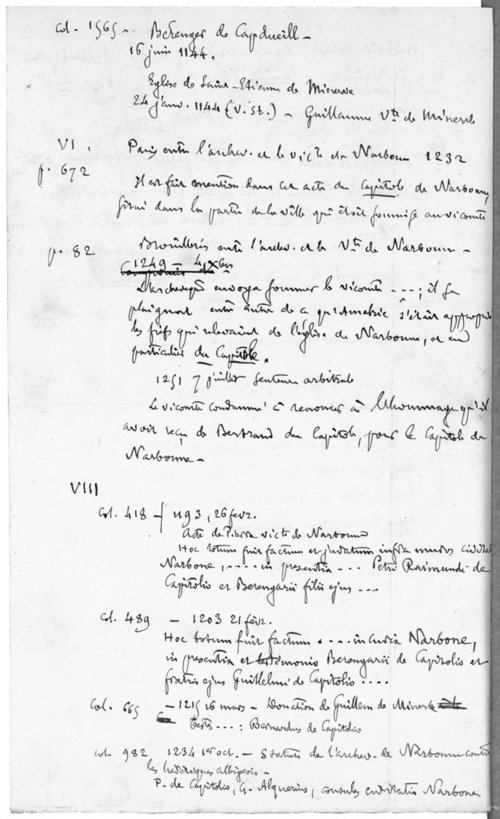 col. 1565 – Berenger de Capdueill –
16 juin 1144.
Eglise de Saint-Etienne de Minerve
24 janv. 1144 (v. st.) – Guillaume Vte de Minerve
VI. Paix entre l'archev. et le victe de Narbonne 1232
p. 672
Il est fait mention dans cet acte du Capitole de Narbonne,
situé dans la partie de la ville qui était soumise au vicomte
p. 82 Brouilleries entre l'archev. et le Vte de Narbonne –
1249 – 4 Xbre
L'archevêque envoya sommer le vicomte ...; il se
plaignait entre autre de ce qu'Amalric s'était approprié
les fiefs qui relevaient de l'église de Narbonne, et en
particulier du Capitole.
1251 7 juillet Sentence arbitrale
Le vicomte condamné à renoncer à l'hommage qu'il
avoit reçu de Bertrand du Capitole, pour le Capitole de
Narbonne –
VIII
col. 418 – 1193, 26 fevr.
Acte de Pierre victe de Narbonne
Hoc totum fuit factum et judicatum infra muros civitatis
Narbone, .... in presentia ... Petri Raimundi de
Capitolio et Berengarii filii ejus ...
col. 489 – 1203 21 fevr.
Hoc totum fuit factum .... in curia Narbone,
in presentia et testimonio Berengarii de Capitolio et
fratris ejus Guillelmi de Capitolio ....
col. 665 – 1215 16 mars – Donation de Guillem de Minerve
Testes ...: Bernardus de Capitolio
col. 982 1234 1er oct. – Statuts de l'archev. de Narbonne contre
les hérétiques albigeois –
P. de Capitolio, G. Alquerius, consules civitatis Narbone